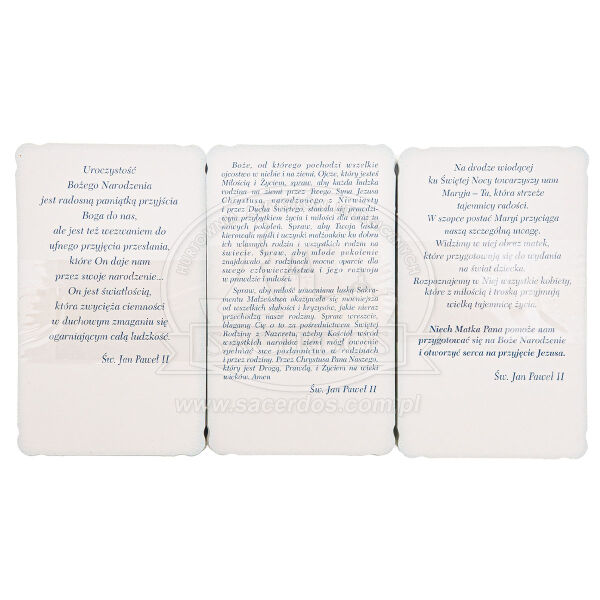 Uroczystość
Bożego Narodzenia
jest radosną pamiątką przyjścia
Boga do nas,
ale jest też wezwaniem do
ufnego przyjęcia przesłania,
które On daje nam
przez swoje narodzenie...
On jest światłością,
która zwycięża ciemności
w duchowym zmaganiu się
ogarniającym całą ludzkość.
Św. Jan Paweł II
Boże, od którego pochodzi wszelkie
ojcostwo w niebie i na ziemi, Ojcze, który jesteś
Miłością i Życiem, spraw, aby każda ludzka
rodzina na ziemi przez Twego Syna Jezusa
Chrystusa, narodzonego z Niewiasty
i przez Ducha Świętego, stawała się prawdzi-
wym przybytkiem życia i miłości dla coraz to
nowych pokoleń. Spraw, aby Twoja łaska
kierowała myśli i uczynki małżonków ku dobru
ich własnych rodzin i wszystkich rodzin na
świecie. Spraw, aby młode pokolenie
znajdowało w rodzinach mocne oparcie dla
swego człowieczeństwa i jego rozwoju
w prawdzie i miłości.
Spraw, aby miłość umacniana łaską Sakra-
mentu Małżeństwa okazywała się mocniejsza
od wszelkich słabości i kryzysów, jakie nieraz
przechodzą nasze rodziny. Spraw wreszcie,
błagamy Cię o to za pośrednictwem Świętej
Rodziny z Nazaretu, ażeby Kościół wśród
wszystkich narodów ziemi mógł owocnie
spełniać swe posłannictwo w rodzinach
i przez rodziny. Przez Chrystusa Pana Naszego,
który jest Drogą, Prawdą, i Życiem na wieki
wieków. Amen
Św. Jan Paweł II
Na drodze wiodącej
ku Świętej Nocy towarzyszy nam
Maryja – Ta, która strzeże
tajemnicy radości.
W szopce postać Maryi przyciąga
naszą szczególną uwagę.
Widzimy w niej obraz matek,
które przygotowują się do wydania
na świat dziecka.
Rozpoznajemy w Niej wszystkie kobiety,
które z miłością i troską przyjmują
wielką tajemnicę życia.
Niech Matka Pana pomoże nam
przygotować się na Boże Narodzenie
i otworzyć serca na przyjęcie Jezusa.
Św. Jan Paweł II
www.sacerdos.com.pl